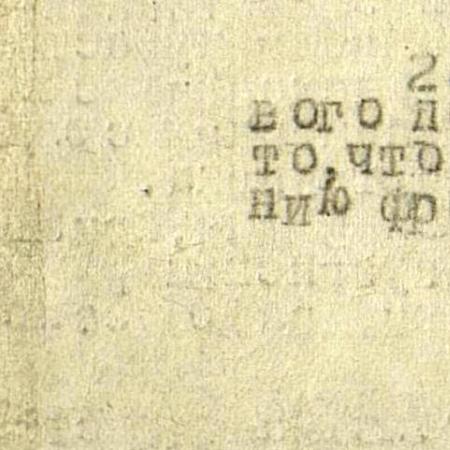 2
вого
то, что
нию фр